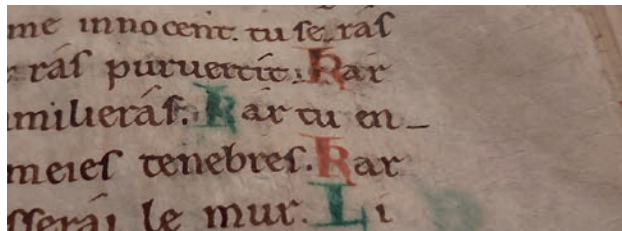 me innocent. tu ſe raſ
raſ puruertit. Kar
milieráſ. Kar tu en-
meieſ tenebreſ. Kar
ſſerai le mur. Li